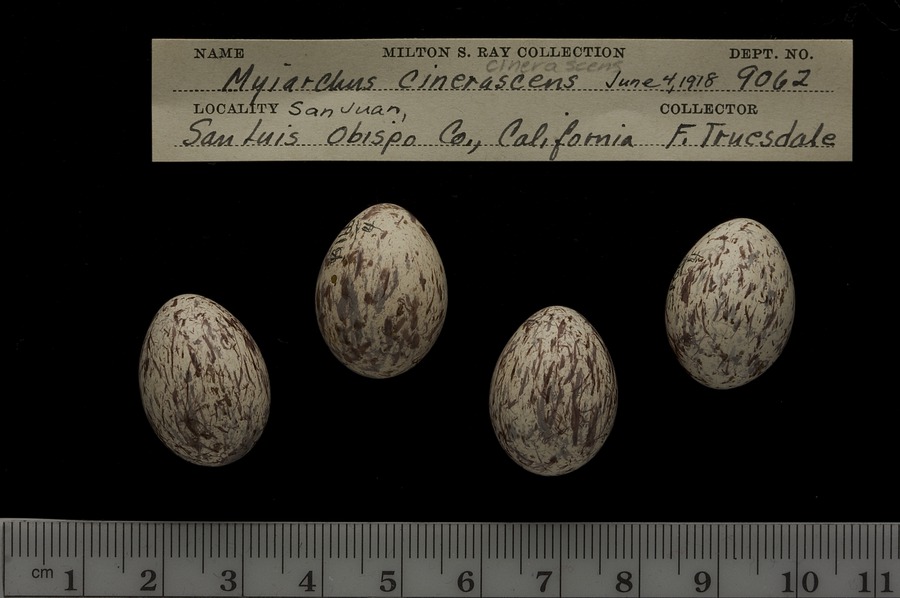 NAME MILTON S. RAY COLLECTION DEPT. NO.
cinerascens
Myiarchus cinerascens June 4, 1918 9062
LOCALITY San Juan, COLLECTOR
San Luis Obispo Co., California F. Truesdale
cm 1 2 3 4 5 6 7 8 9 10 11